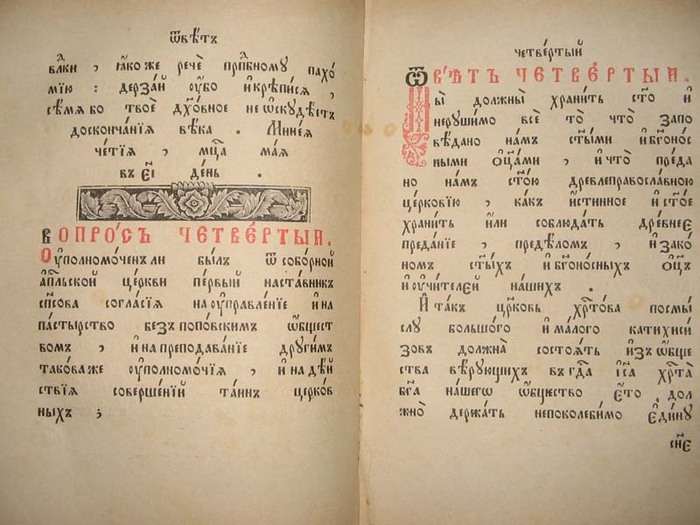 ѿвѣтъ
влⷣки , ꙗ҆́коже речѐ прⷣпбному пахо́
мїю : дерза́й ᲂу҆̀бо и҆крѣпи́сѧ ,
сѣ́мѧ бо твоѐ дꙋхо́вное не ѡ҆скꙋдѣ́етъ
доскончанїѧ вѣка . Минеѧ
че́тїѧ , мцⷭ҇а маѧ
въ є҃і де́нь .
вопро́съ четве́ртый .
Оу҆полномо́ченли бы́лъ ѿ собо́рной
а҆пⷭ҇льской цр҃кви пе́рвый наста́вникъ
спⷭ҇сова согла́сїѧ наᲂу҆правле́нїе и҆ на
па́стырство безъ попо́вскимъ ѻ҆́бщест
вомъ , и҆ напреподава́нїе дрꙋги́мъ
тако́важе ᲂу҆полномо́чїѧ , и҆ надѣ́й
ствїѧ соверше́нїй та́инъ церко́в
ныхъ ;
четве́ртый
ѿвѣ́тъ четве́ртый .
Мы̀ должны̀ храни́ть ст҃о и҆
нерꙋши́мо всѐ то̀ что̀ запо
вѣ́дано на́мъ ст҃ы́ми и҆ бг҃оно́с
ными ѻ҆ц҃а́ми , и҆ что̀ преда
но на́мъ ст҃о́ю древлеправосла́вною
це́рковїю , какъ и҆́стинное и҆ ст҃о́е
храни́ть и҆лѝ соблюда́ть дре́внее
преда́нїе , предѣ́ломъ , и҆ зако́
номъ ст҃ы́хъ и҆ бг҃оно́сныхъ ѻ҆ц҃ъ
и҆ ᲂу҆чи́телей на́шихъ .
И҆ та́къ цр҃ковь хрⷭ҇то́ва посмы́
слꙋ большо́гѡ и҆ ма́лагѡ катихиси
зовъ должна̀ состоѧ́ть и҆зъ ѻ҆́бще
ства вѣ́рꙋющихъ въ гдⷭ҇а і҆и҃са хрⷭ҇та̀
бг҃а на́шегѡ ѻ҆́бщество є҆́то , дол
жно̀ держа́ть непоколеби́мо є҆ди́нꙋ
сїѐ